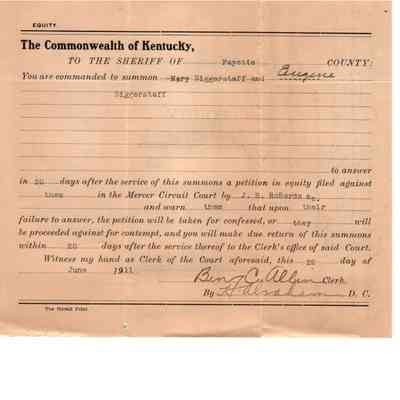 EQUITY.
The Commonwealth of Kentucky,
TO THE SHERIFF OF Fayette COUNTY:
You are commanded to summon Mary Biggerstaff and Eugene
Biggerstaff
to answer
in 20 days after the service of this summons a petition in equity filed against
them in the Mercer Circuit Court by J. B. RoBards &c.
and warn them that upon their
failure to answer, the petition will be taken for confessed, or they will
be proceeded against for contempt, and you will make due return of this summons
within 20 days after the service thereof to the Clerk's office of said Court.
Witness my hand as Clerk of the Court aforesaid, this 20 day of
June 1911
Ben C. Allin Clerk
By D. C.
Print